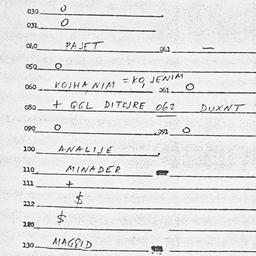 030 0
031 0
040 PAJET 041 —
050 0
060 KOJHANIM = KO, JENIM 061 0
080 + QGL DITOJRE 062 DUXNT
090 0 091 0
100 ANALIJE
110 MINADER
111 +
112 $
120 $
130 MAGGID